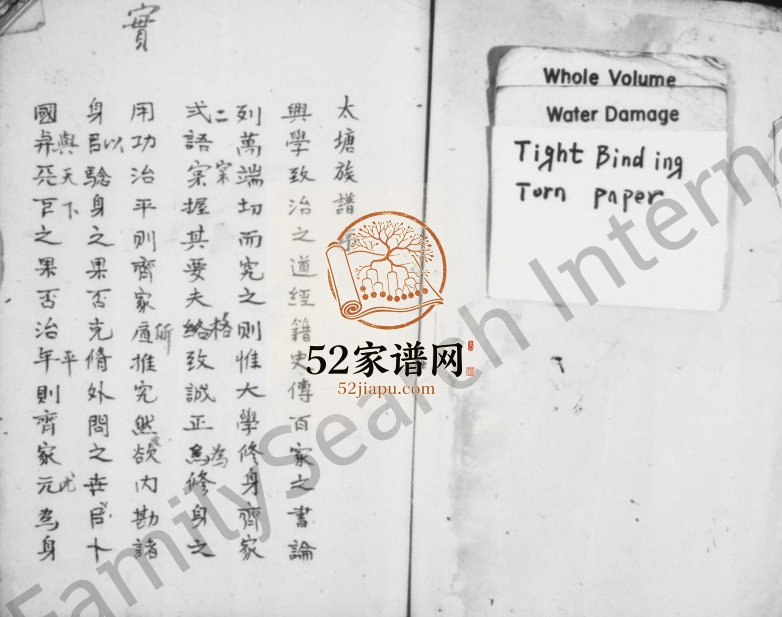 實
太塘族譜
興學致治之道經籍史傳百家之書論
列萬端切而究之則惟大學修身齊家
二
式語宗握其要夫絡致誠正為修身之
宗
格
為
用功治平則齊家推究然欲內勘諸
所
身以驗身之果否先脩外問之
國之果否治年則齊家元為身
與天下
平
Whole Volume
Water Damage
Tight Binding
Torn paper
52家谱网
52jiapu.com
FamilySearch Intern